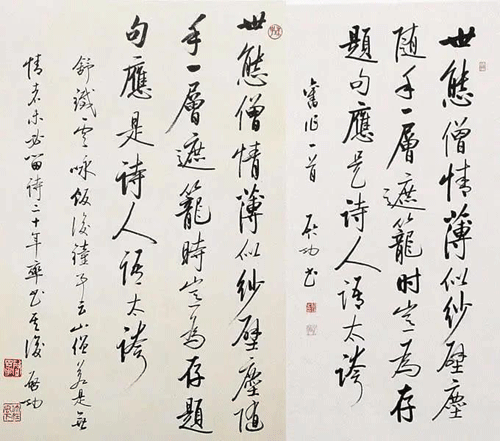 世態僧情薄似紗壁塵
随手一層遮籠时豈為存
題句應是詩人語太誇
舊作一首 啟功書
世態僧情薄似紗壁塵随
手一層遮籠時豈為存題
句應是詩人語太誇
舒鐵雲詠飯後鐘云山僧若是無
情者未必留詩二十年率書其後 啟功